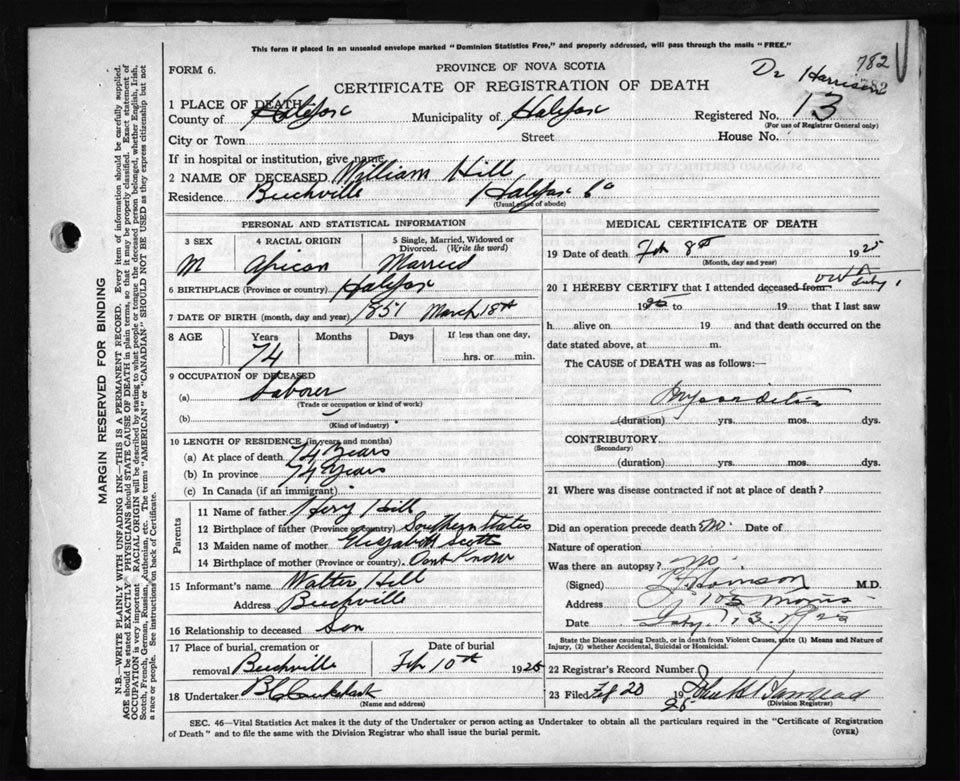 This form if placed in an unsealed envelope marked "Dominion Statistics Free," and properly addressed, will pass through the mails "FREE."
FORM 6.
PROVINCE OF NOVA SCOTIA
Dr Harrison
782
CERTIFICATE OF REGISTRATION OF DEATH
1 PLACE OF DEATH
County of Halifax Municipality of Halifax Registered No. 13
(For use of Registrar General only)
City or Town Street House No.
If in hospital or institution, give name
2 NAME OF DECEASED William Hill
Residence Beechville Halifax Co
(Usual place of abode)
PERSONAL AND STATISTICAL INFORMATION
3 SEX 4 RACIAL ORIGIN 5 Single, Married, Widowed or Divorced. (Write the word)
M African Married
6 BIRTHPLACE (Province or country) Halifax
7 DATE OF BIRTH (month, day and year) 1851 March 18th
8 AGE Years Months Days If less than one day,
74 hrs. or min.
9 OCCUPATION OF DECEASED
(a) Laborer
(Trade or occupation or kind of work)
(b)
(Kind of industry)
10 LENGTH OF RESIDENCE (in years and months)
(a) At place of death 74 Years
(b) In province 74 Years
(c) In Canada (if an immigrant)
Parents
11 Name of father Hill
12 Birthplace of father (Province or country) Southern States
13 Maiden name of mother Elizabeth Scott
14 Birthplace of mother (Province or country) Dont Know
15 Informant's name Walter Hill
Address Beechville
16 Relationship to deceased Son
17 Place of burial, cremation or Date of burial
removal Beechville Feb 10th 1925
18 Undertaker
(Name and address)
MEDICAL CERTIFICATE OF DEATH
19 Date of death Feb 8th 1925
(Month, day and year)
20 I HEREBY CERTIFY that I attended deceased from
19 to 19 that I last saw
h alive on 19 and that death occurred on the
date stated above, at m.
The CAUSE of DEATH was as follows:—
Myocarditis
(duration) yrs. mos. dys.
CONTRIBUTORY
(Secondary)
(duration) yrs. mos. dys.
21 Where was disease contracted if not at place of death?
Did an operation precede death No. Date of
Nature of operation
Was there an autopsy? No
(Signed) M.D.
Address 105 Morris
Date 13. 1925
State the Disease causing Death, or in death from Violent Causes, state (1) Means and Nature of Injury, (2) whether Accidental, Suicidal or Homicidal.
22 Registrar's Record Number
23 Filed Feb 20 1925
(Division Registrar)
SEC. 46—Vital Statistics Act makes it the duty of the Undertaker or person acting as Undertaker to obtain all the particulars required in the "Certificate of Registration
of Death" and to file the same with the Division Registrar who shall issue the burial permit.
(OVER)
MARGIN RESERVED FOR BINDING
N.B.—WRITE PLAINLY WITH UNFADING INK—THIS IS A PERMANENT RECORD. Every item of information should be carefully supplied.
AGE should be stated EXACTLY. PHYSICIANS should STATE CAUSE OF DEATH in plain terms, so that it may be properly classified. Exact statement of
OCCUPATION is very important. RACIAL ORIGIN will be described by stating to what people or tongue the deceased person belonged, whether English, Irish,
Scotch, French, German, Russian, Ruthenian, etc. The terms "AMERICAN" or "CANADIAN" SHOULD NOT BE USED as they express citizenship but not
a race or people. See instructions on back of Certificate.